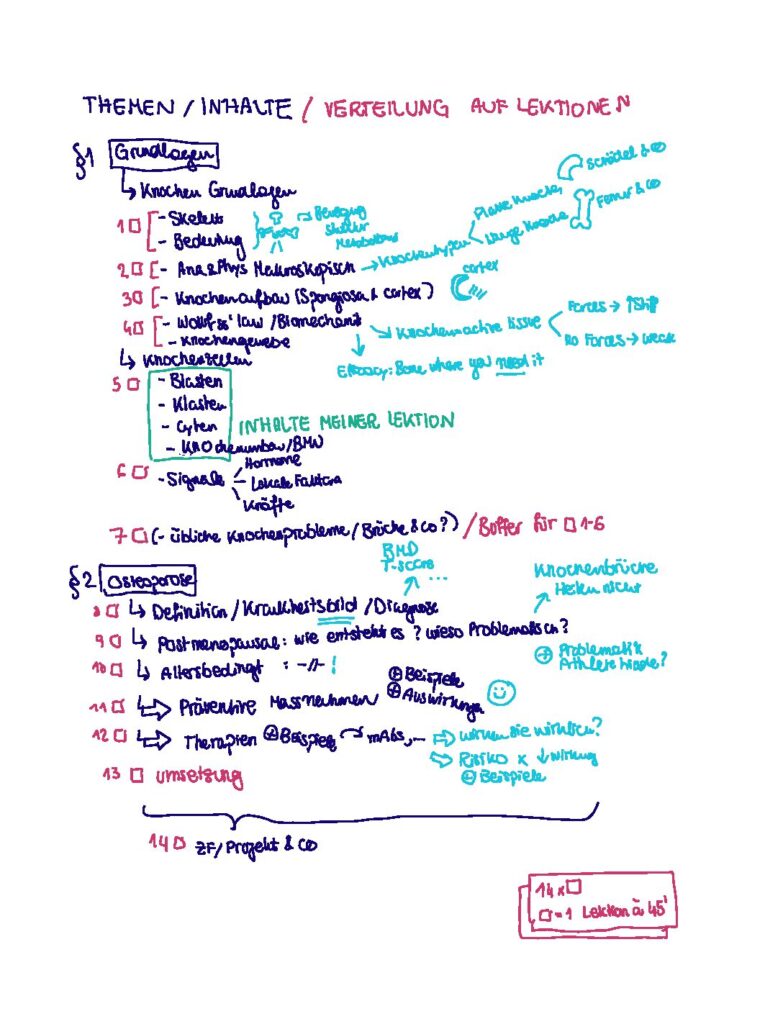 THEMEN / INHALTE / VERTEILUNG AUF LEKTIONEN
§1 Grundlagen
↳ Knochen Grundlagen
1 □ - Skelett
- Bedeutung
→ Bewegung
Metabolismus
2 □ - Ana & Phys Makroskopisch → Knochentypen
Platte Knochen
Schädel & co
Lange Knochen
Femur & co
3 □ - Knochenaufbau (Spongiosa & cortex)
cortex
4 □ - Wolff's law / Biomechanik
- Knochengewebe
→ Knochen active tissue
Forces → ↑Stiff
No Forces → weak
Efficacy: Bone where you need it
↳ Knochenzellen
5 □ - Blasten
- Klasten
- Cyten
- Knochenumbau/BMU
INHALTE MEINER LEKTION
6 □ - Signale
Hormone
Lokale Faktoren
Kräfte
7 □ (- übliche Knochenprobleme / Brüche & co?) / Buffer für □ 1-6
§2 Osteoporose
BMD
T-score
...
Knochenbrüche
Heilen nicht
8 □ ↳ Definition / Krankheitsbild / Diagnose
9 □ ↳ Postmenopausal: wie entsteht es? wieso Problematisch?
10 □ ↳ Altersbedingt : -//- !
⊕ Problematik
11 □ ↳ Präventive Massnahmen
⊕ Beispiele
⊕ Auswirkungen
12 □ ↳ Therapien ⊕ Beispiele → mAbs, ...
⇨ wirken sie wirklich?
⇨ Risiko x ↓ wirkung
⊕ Beispiele
13 □ Umsetzung
14 □ ZF/Projekt & co
14 x □
□ = 1 Lektion à 45'